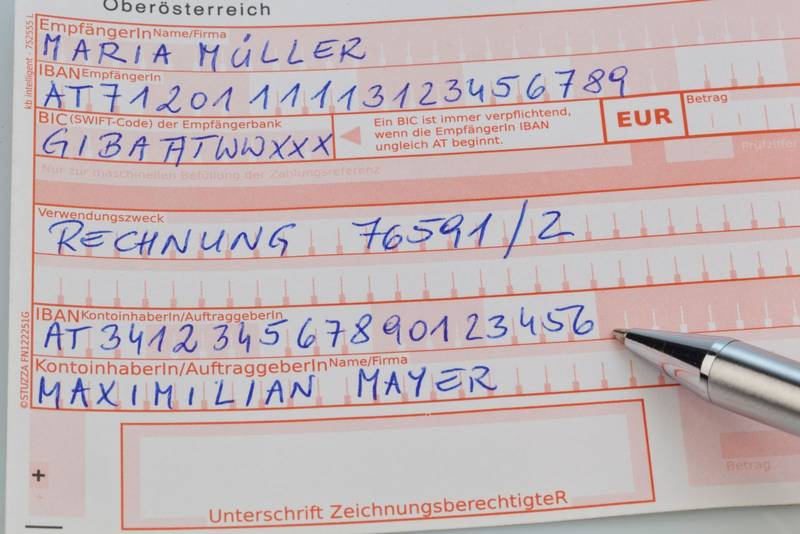 Oberösterreich
EmpfängerIn Name/Firma
MARIA MÜLLER
IBAN EmpfängerIn
AT7120111113123456789
BIC (SWIFT-Code) der Empfängerbank
GIBAATWWXXX
Ein BIC ist immer verpflichtend,
wenn die EmpfängerIn IBAN
ungleich AT beginnt.
EUR
Betrag
Prüfziffer
Nur zur maschinellen Befüllung der Zahlungsreferenz
Verwendungszweck
RECHNUNG 76591/2
IBAN KontoinhaberIn/AuftraggeberIn
AT341234567890123456
KontoinhaberIn/AuftraggeberIn Name/Firma
MAXIMILIAN MAYER
Betrag
Unterschrift ZeichnungsberechtigteR
+
kb intelligent - 752555 L
©STUZZA FN122251G